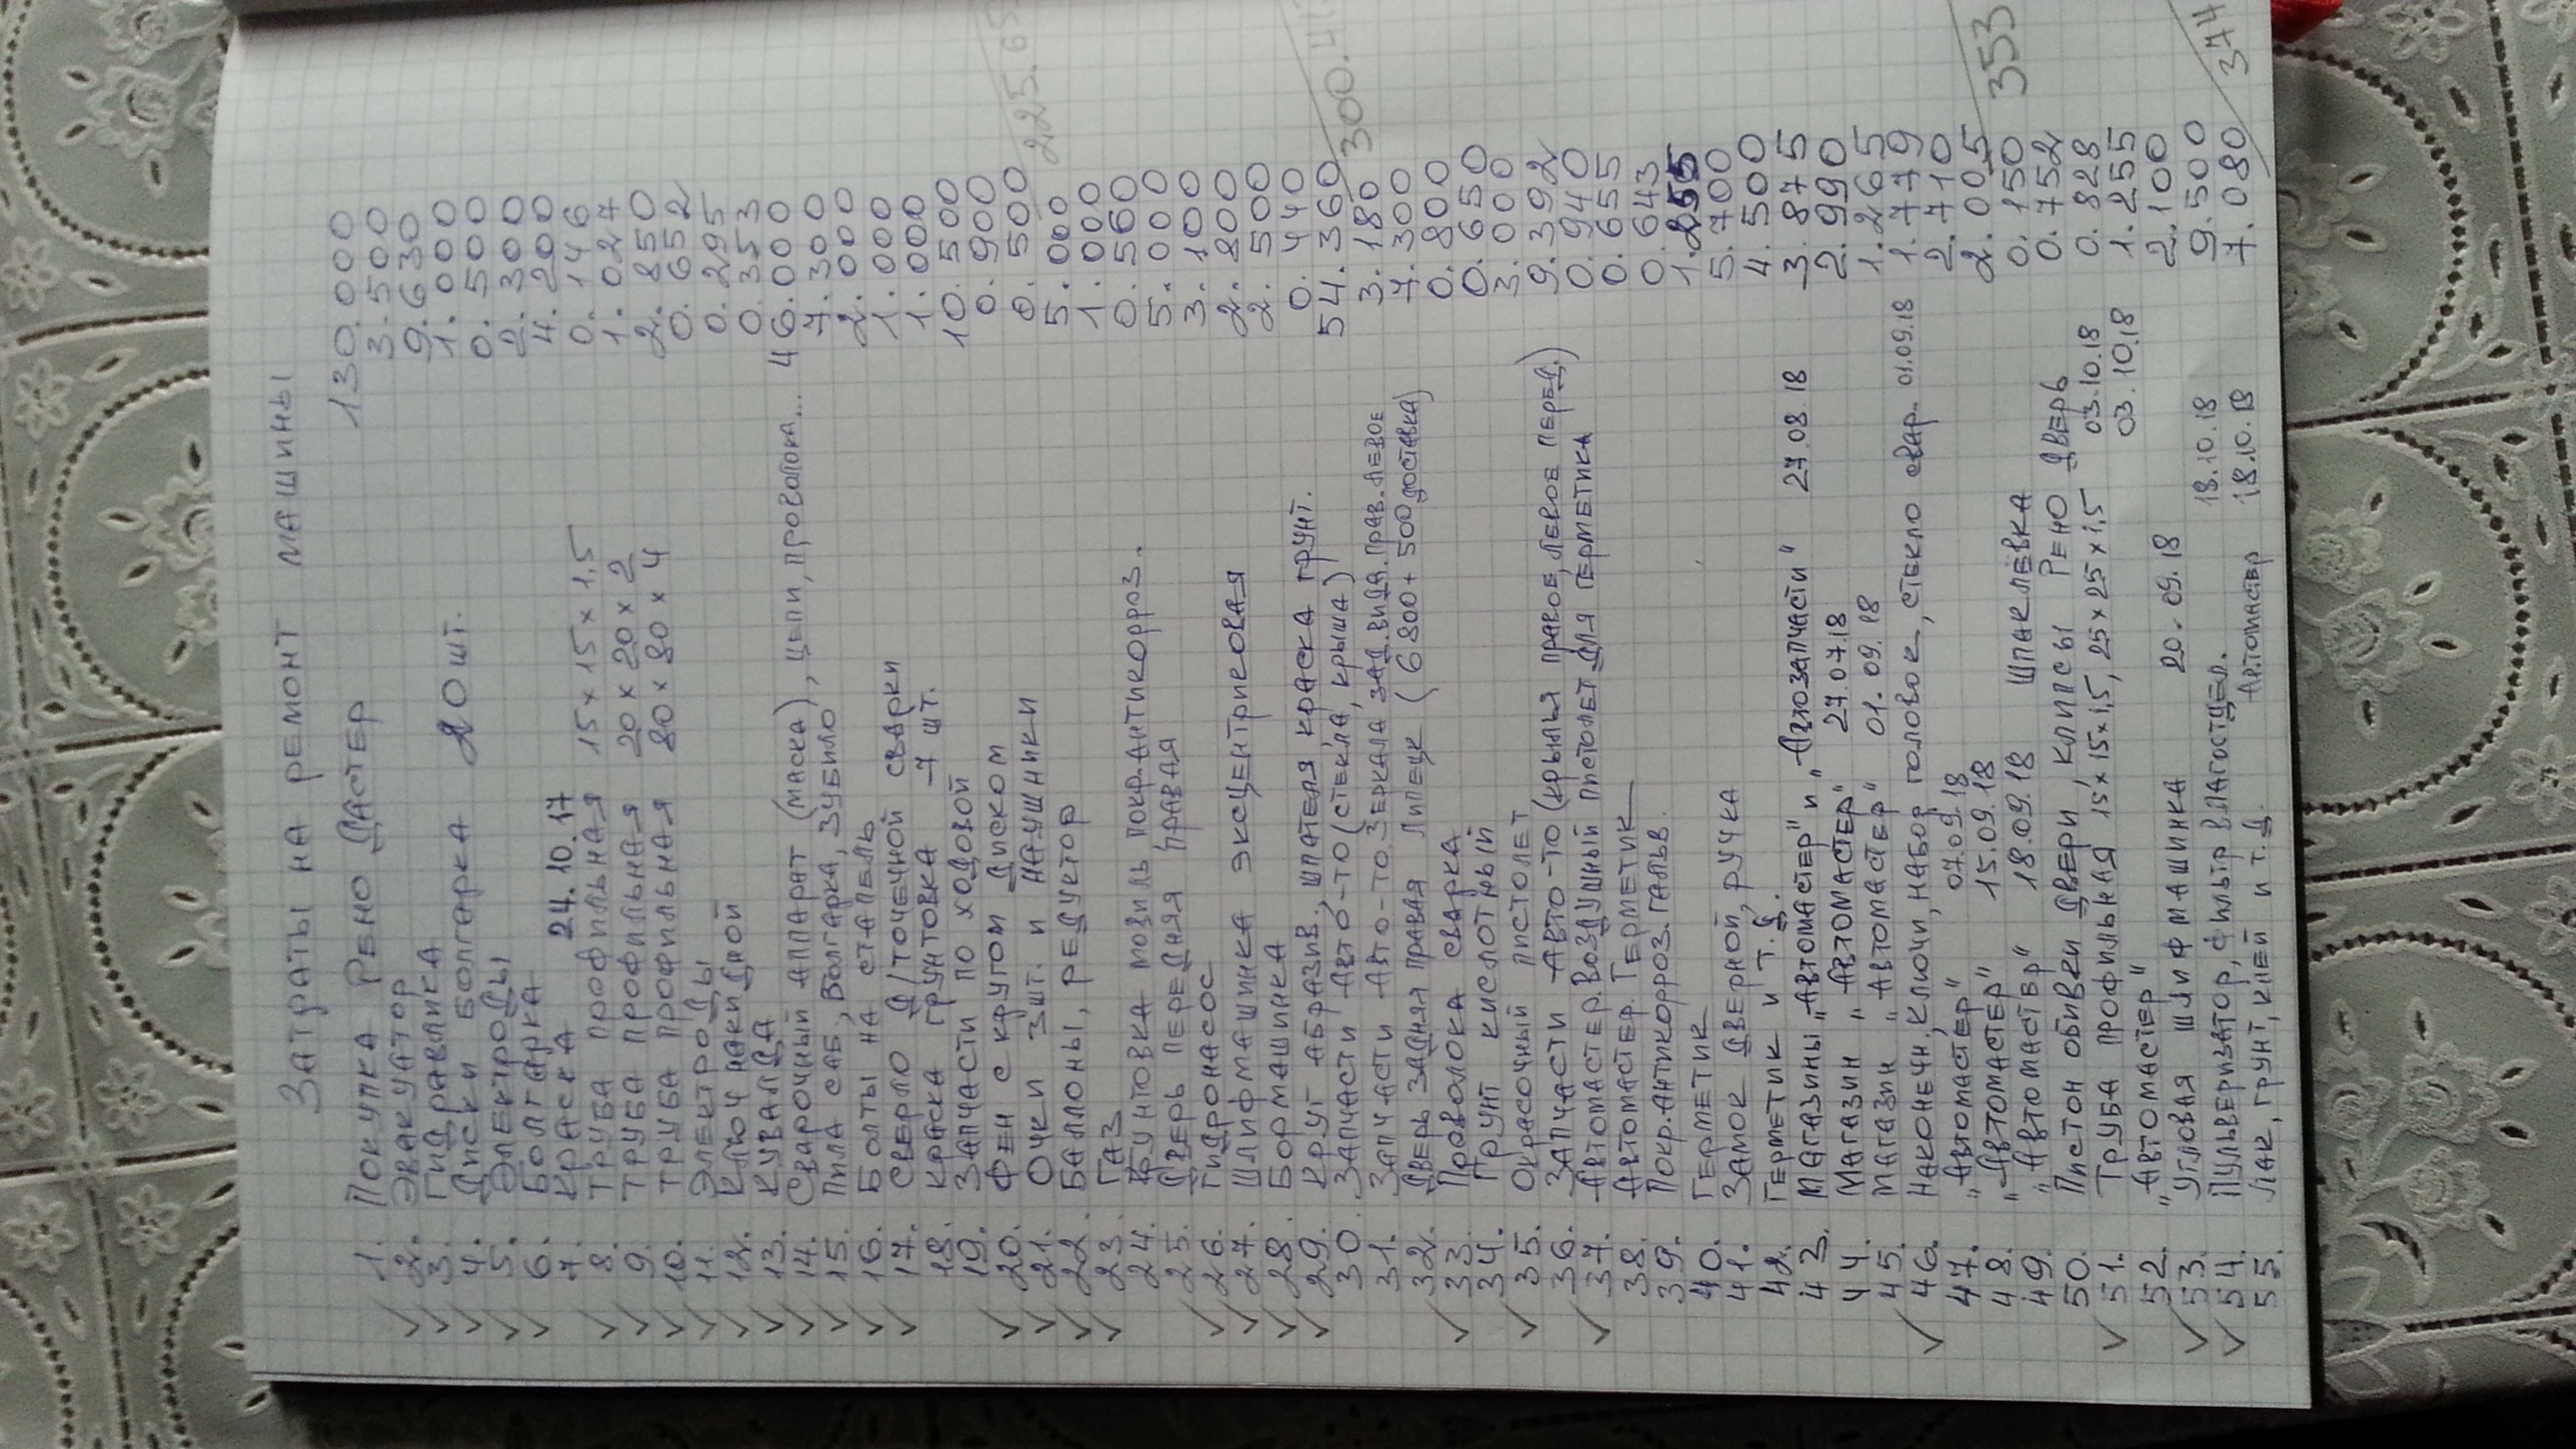 Затраты на ремонт машины
1. Покупка Рено Дастер 130.000
2. Эвакуатор 3.500
3. Гидравлика 9.630
4. Диски болгарка 20 шт. 1.000
5. Электроды 0.500
6. Болгарка 2.300
7. Краска 24.10.17 4.200
8. Труба профильная 15 x 15 x 1,5 0.146
9. Труба профильная 20 x 20 x 2 1.027
10. Труба профильная 80 x 80 x 4 2.850
11. Электроды 0.652
12. Ключ накидной 0.295
13. Кувалда 0.353
14. Сварочный аппарат (маска), цепи, проволока... 46.000
15. Пила саб., Болгарка, Зубило 7.300
16. Болты на стапель 2.000
17. Сверло д/точечной сварки 1.000
18. Краска грунтовка 7 шт. 1.000
19. Запчасти по ходовой 10.500
20. Фен с кругом диском 0.900
21. Очки 3шт. и наушники 0.500
22. Баллоны, редуктор 5.000
23. Газ 1.000
24. Грунтовка мовиль покр.антикорроз. 0.560
25. Дверь передняя правая 5.000
26. Гидронасос 3.100
27. Шлифмашинка эксцентриковая 2.800
28. Бормашинка 2.500
29. Круг абразив., шпателя краска грунт. 0.440
30. Запчасти Авто-то (стекла, крыша) 54.360
31. Запчасти Авто-то. Зеркала зад.вида. прав.левое 3.180
32. Дверь задняя правая Липецк (6800+500 доставка) 7.300
33. Проволока сварка 0.800
34. Грунт кислотный 0.650
35. Окрасочный пистолет 3.000
36. Запчасти Авто-то (крылья правое, левое перед.) 9.392
37. Автомастер.Воздушный пистолет для герметика 0.940
38. Автомастер. Герметик 0.655
39. Покр.антикорроз.гальв. 0.643
40. Герметик 1.255
41. Замок дверной, ручка 5.700
42. Герметик и т.д. 4.500
43. Магазины "Автомастер" и "Автозапчасти" 27.08.18 3.875
44. Магазин "Автомастер" 27.07.18 2.990
45. Магазин "Автомастер" 01.09.18 1.265
46. Наконечн., ключи, набор головок, стекло свар. 01.09.18 1.779
47. "Автомастер" 07.09.18 2.710
48. "Автомастер" 15.09.18 2.005
49. "Автомаствр" 18.09.18 Шпаклёвка 0.150
50. Пистон обивки двери, клипсы Рено дверь 0.752
51. Труба профильная 15x15x1,5, 25x25x1,5 03.10.18 0.828
52. "Автомастер" 03.10.18 1.255
53. Угловая шлифмашинка 20.09.18 2.100
54. Пульверизатор, фильтр влагоотдел. 18.10.18 9.500
55. Лак, грунт, клей и т.д. Автомаствр 18.10.18 7.080
353
374